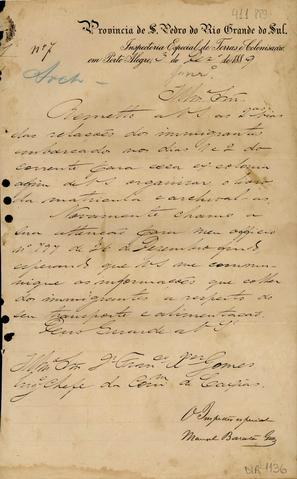 411 889
Provincia de S. Pedro do Rio Grande do Sul.
Nº 7
Inspectoria Especial de Terras e Colonisação
em Porto Alegre, 3 de de 1889
Janrº
Arch
Illmo Snr.
Remetto a V. S. as 2as vias
das relações de immigrantes
embarcados nos dias 1 e 2 do
corrente para essa ex colonia
afim de V. S. organisar o livro
da matricula e archival-as.
Novamente chamo a
sua attenção para meu officio
nº 797 de 26 de Dezembro
esperando que V. S. me commu-
nique as informações que colher
dos immigrantes a respeito do
seu transporte e alimentação.
Deus Guarde a V. S.
Illmo Snr. Dr. Franco Xer Gomes
Engº Chefe da Comm de Caxias
O Inspector especial
Manoel Barata Góes
DIR-1136